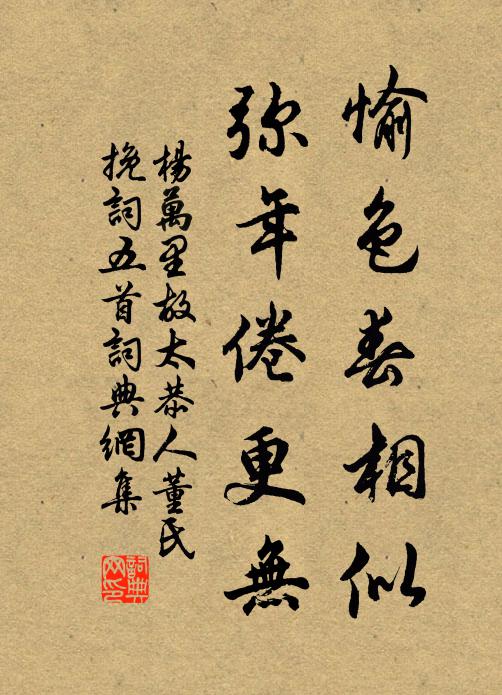 愉色春相似
弥年倦更無
楊萬里故太恭人董氏
挽詞五首詞典網集
詞典
网印